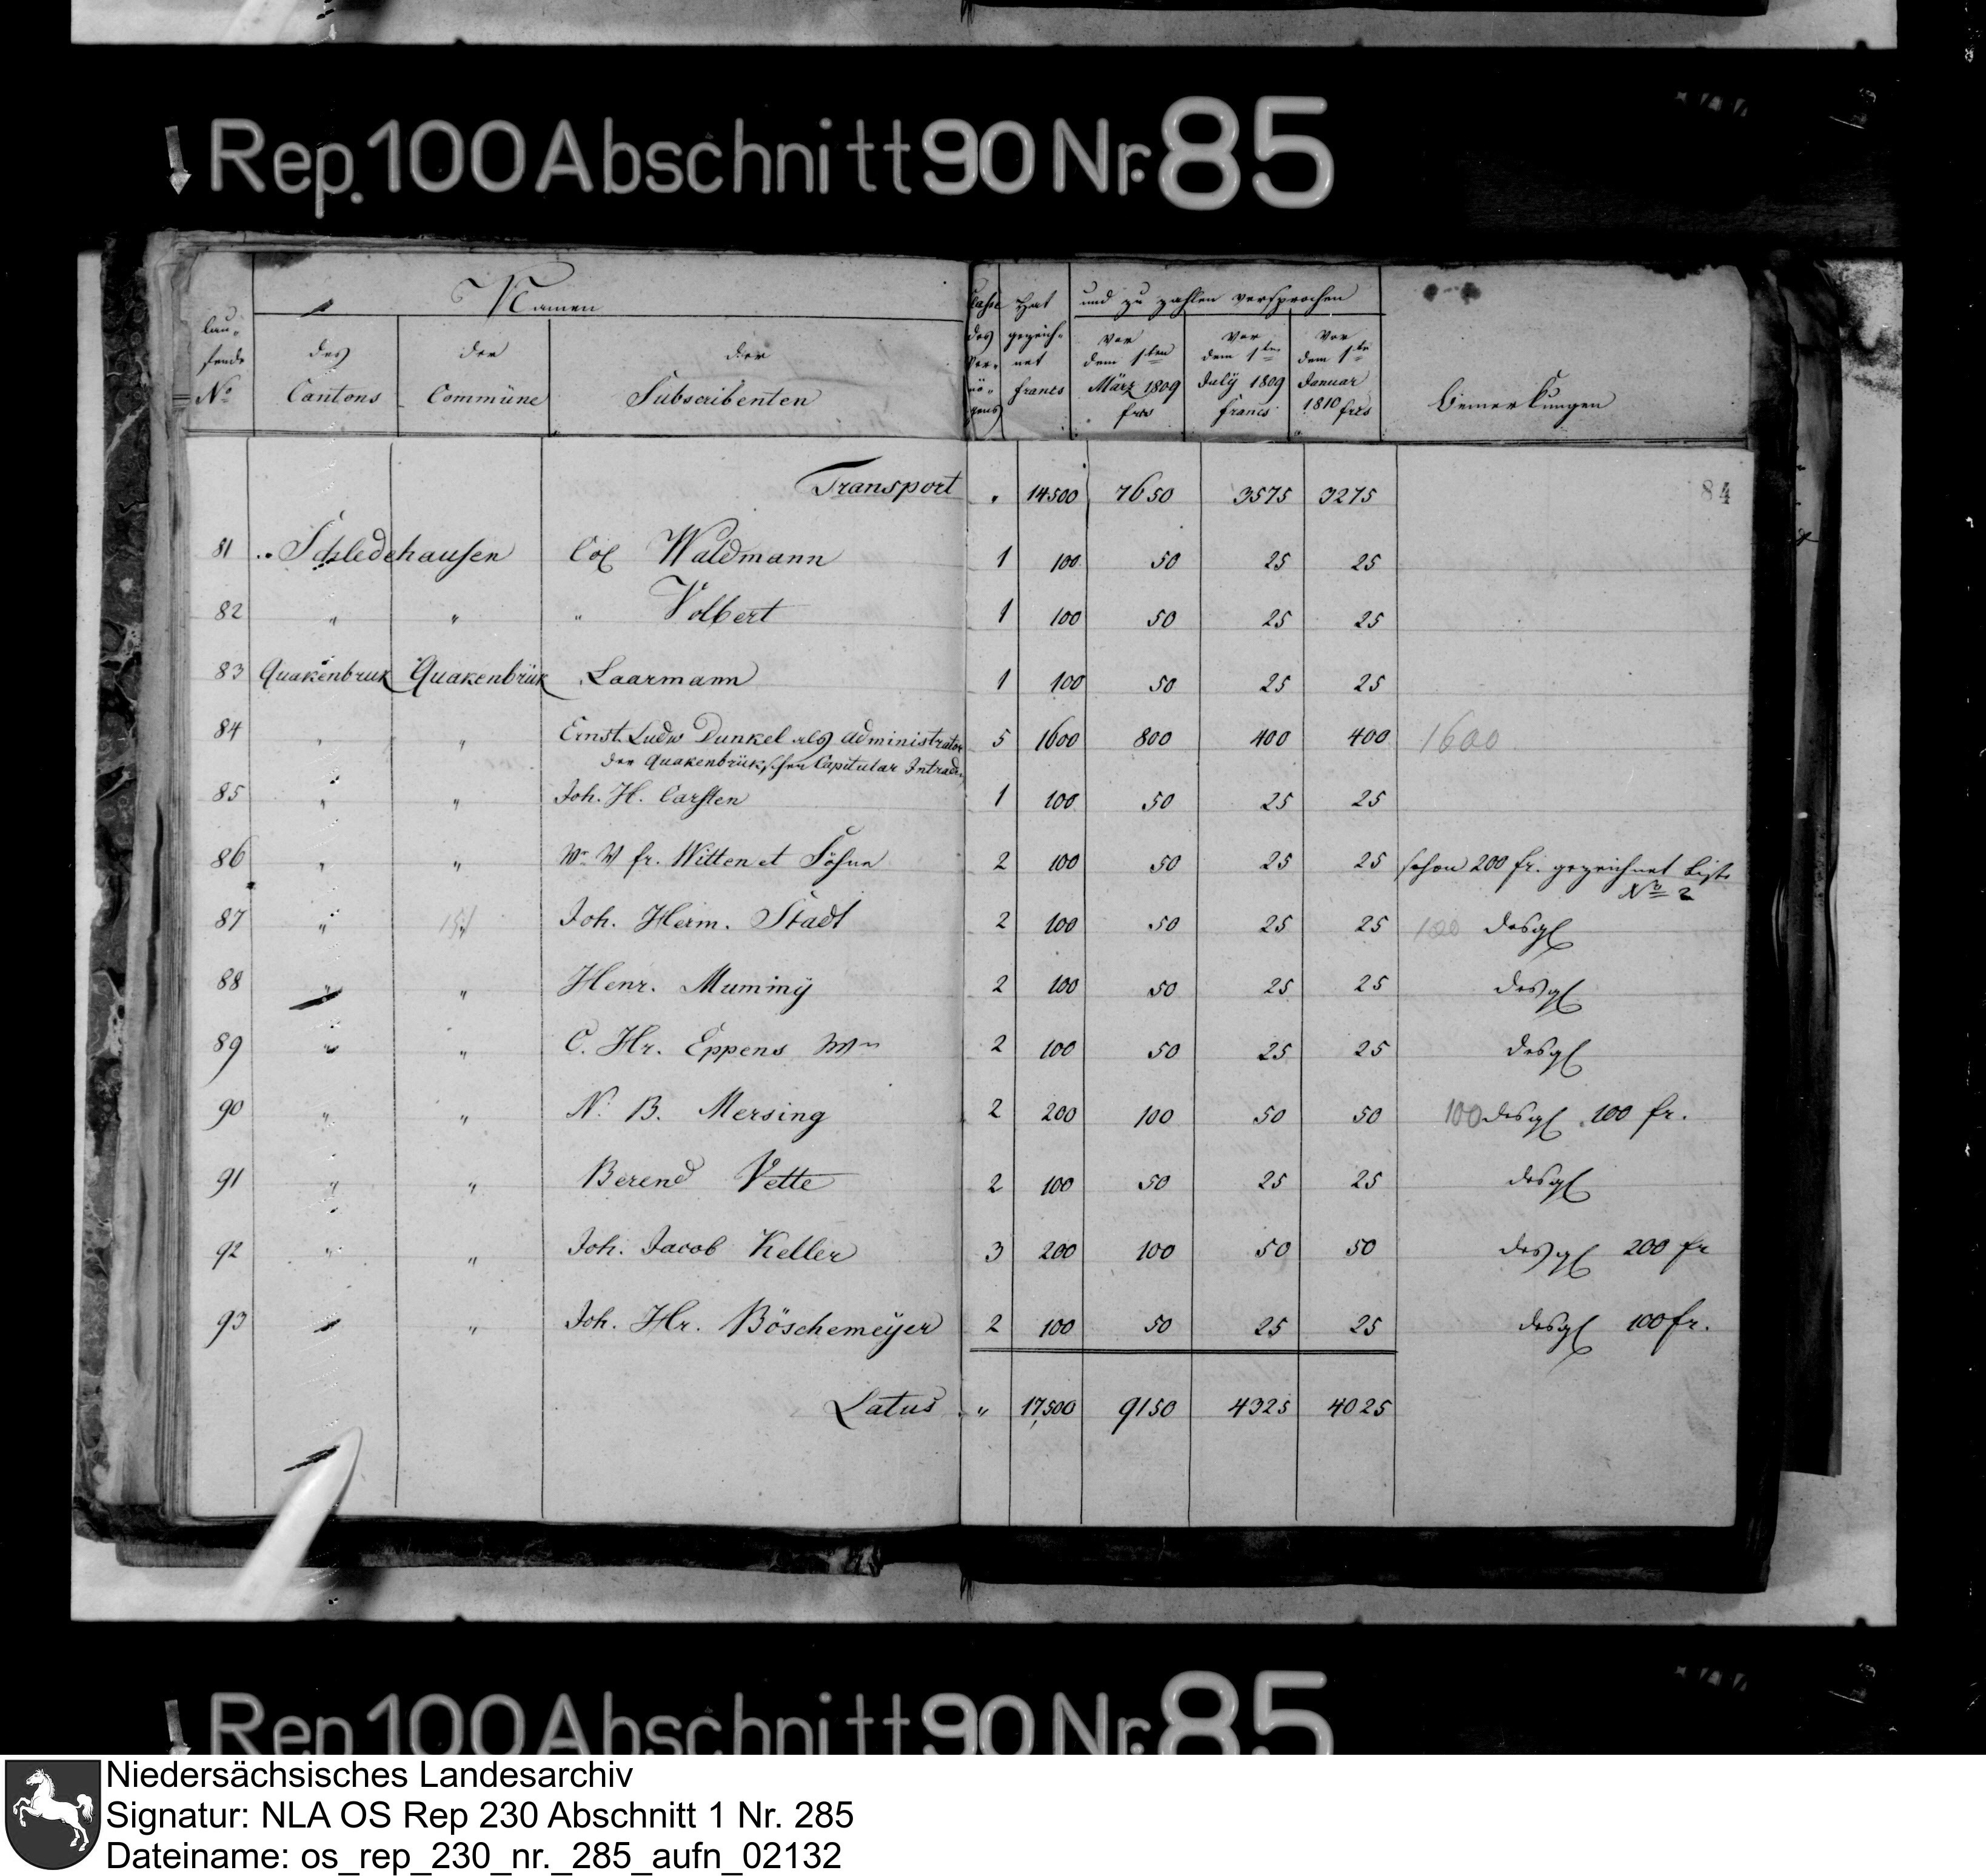 Rep. 100 Abschnitt 90 Nr. 85
Namen
Classe des Vermögens
Hat gezeichnet francs
und zu zahlen versprochen
laufende No
des Cantons
der Commüne
der Subscribenten
vor dem 1ten März 1809 frcs
vor dem 1ten July 1809 francs
vor dem 1ten Januar 1810 frcs
Bemerkungen
84
Transport 14500 7650 3575 3275
81 " Schledehausen Col Waldmann 1 100 50 25 25
82 " " " Volbert 1 100 50 25 25
83 Quakenbruk Quakenbrük Laarmann 1 100 50 25 25
84 " " Ernst Ludw Dunkel als Administrator 5 1600 800 400 400 1600
der Quakenbrükschen Capitular Intraden
85 " " Joh. H. Carsten 1 100 50 25 25
86 " " Wr W fr. Witten et Söhne 2 100 50 25 25 schon 200 fr. gezeichnet Liste
No 2
87 " " Joh. Herm. Stadl 2 100 50 25 25 100 desgl
88 " " Henr. Mumiy 2 100 50 25 25 desgl
89 " " C. Hr. Eppens Wn 2 100 50 25 25 desgl
90 " " N. B. Mersing 2 200 100 50 50 100 desgl 100 fr.
91 " " Berend Vette 2 100 50 25 25 desgl
92 " " Joh. Jacob Keller 3 200 100 50 50 desgl 200 fr
93 " " Joh. Hr. Böschemeÿer 2 100 50 25 25 desgl 100 fr.
Latus " 17,500 9150 4325 4025
Rep 100 Abschnitt 90 Nr. 85
Niedersächsisches Landesarchiv
Signatur: NLA OS Rep 230 Abschnitt 1 Nr. 285
Dateiname: os_rep_230_nr._285_aufn_02132